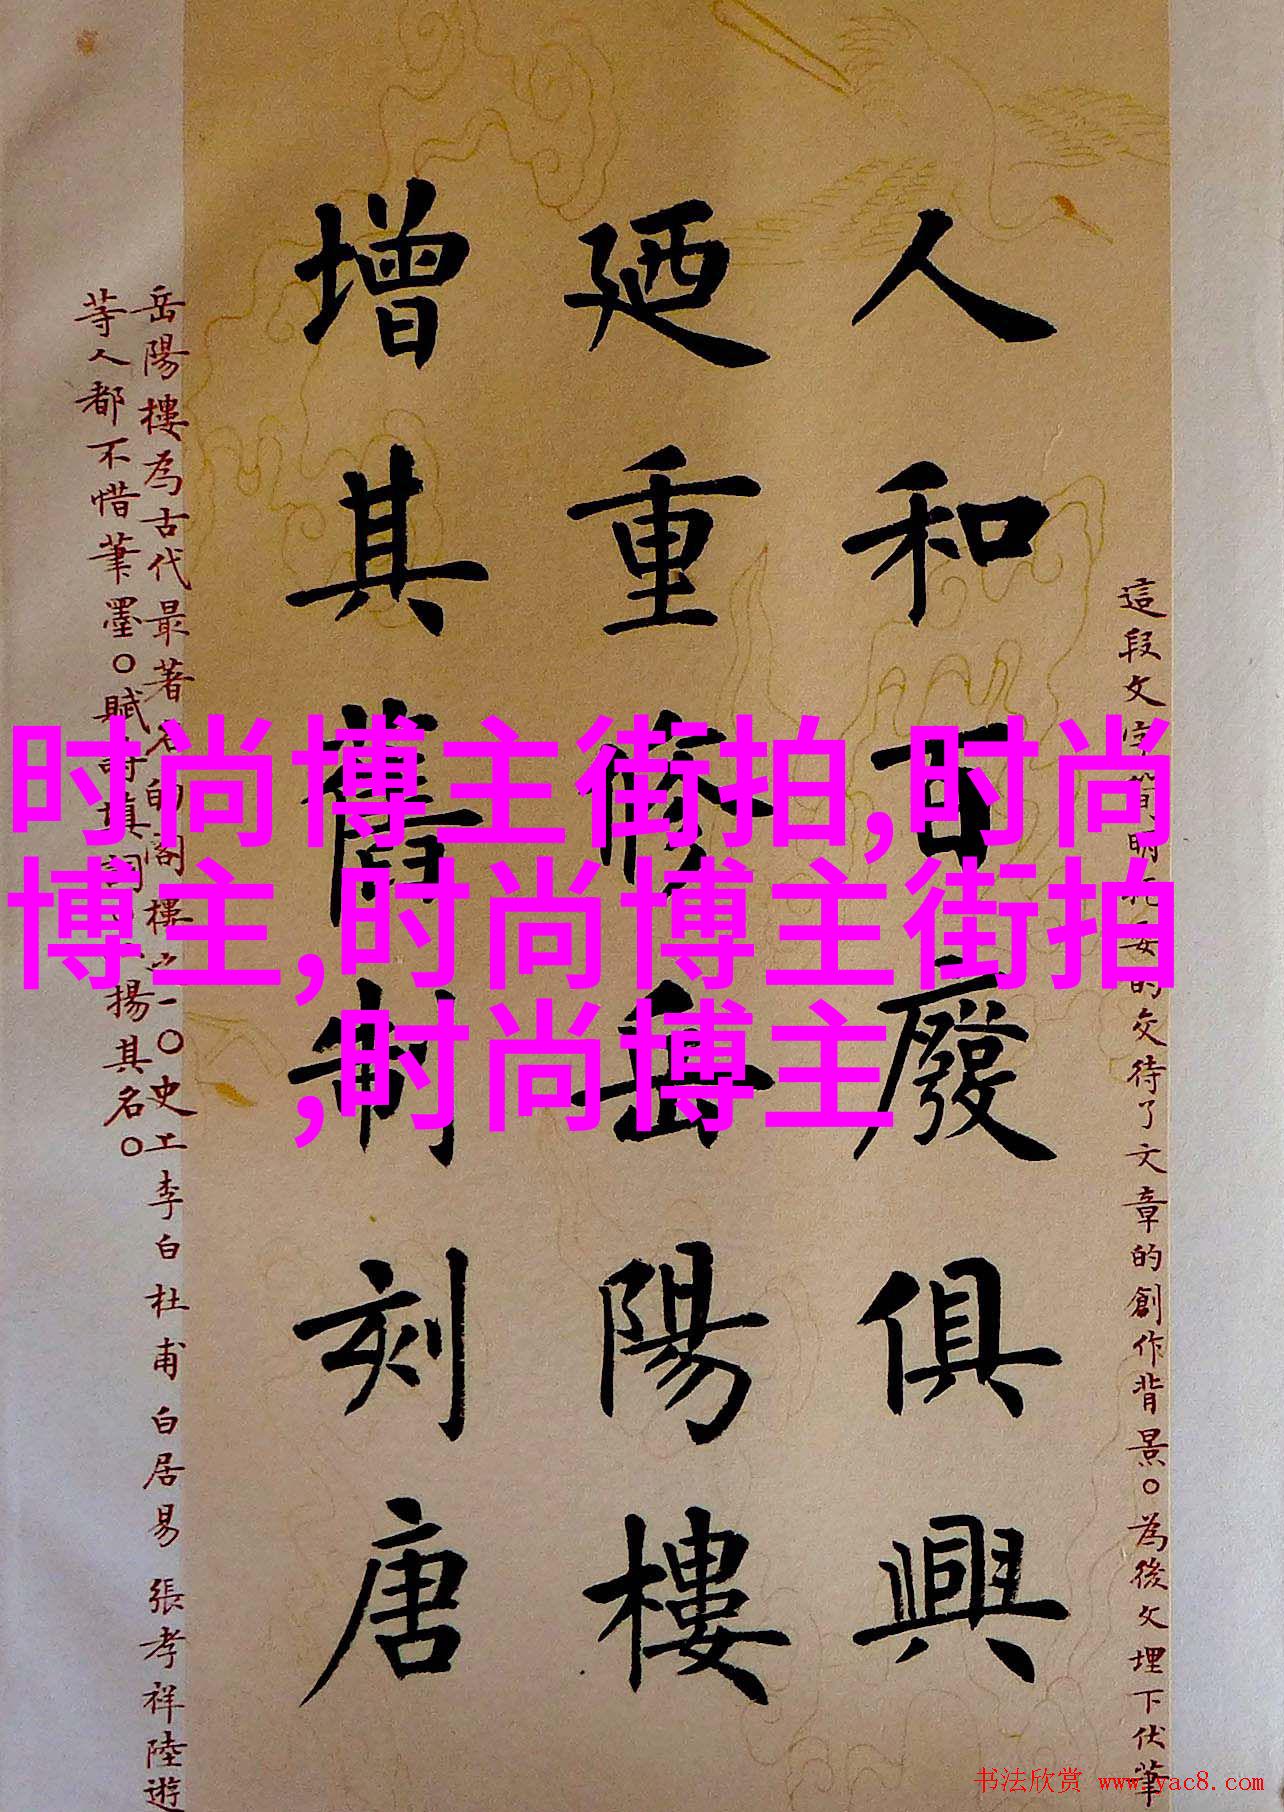 這段文字簡明扼要的交待了文章的創作背景。為後文埋下伏筆
人和百廢俱興
廼重修岳陽樓
增其舊制刻唐
岳陽樓為古代最著名的閣樓之一。史上李白杜甫白居易張孝祥陸遊
等人都不惜筆墨。賦詩填詞。揚其名。
时尚博主街拍,时尚
博主,时尚博主街拍
,时尚博主
书法欣赏 www.yac8.com